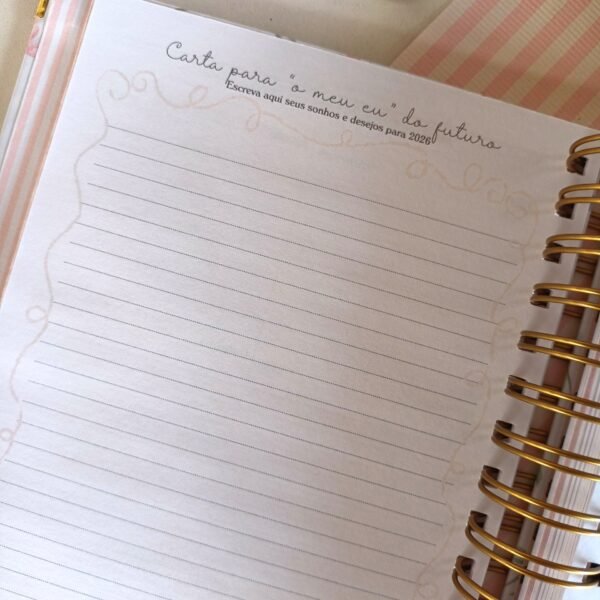 Carta para "o meu eu" do futuro
Escreva aqui seus sonhos e desejos para 2026